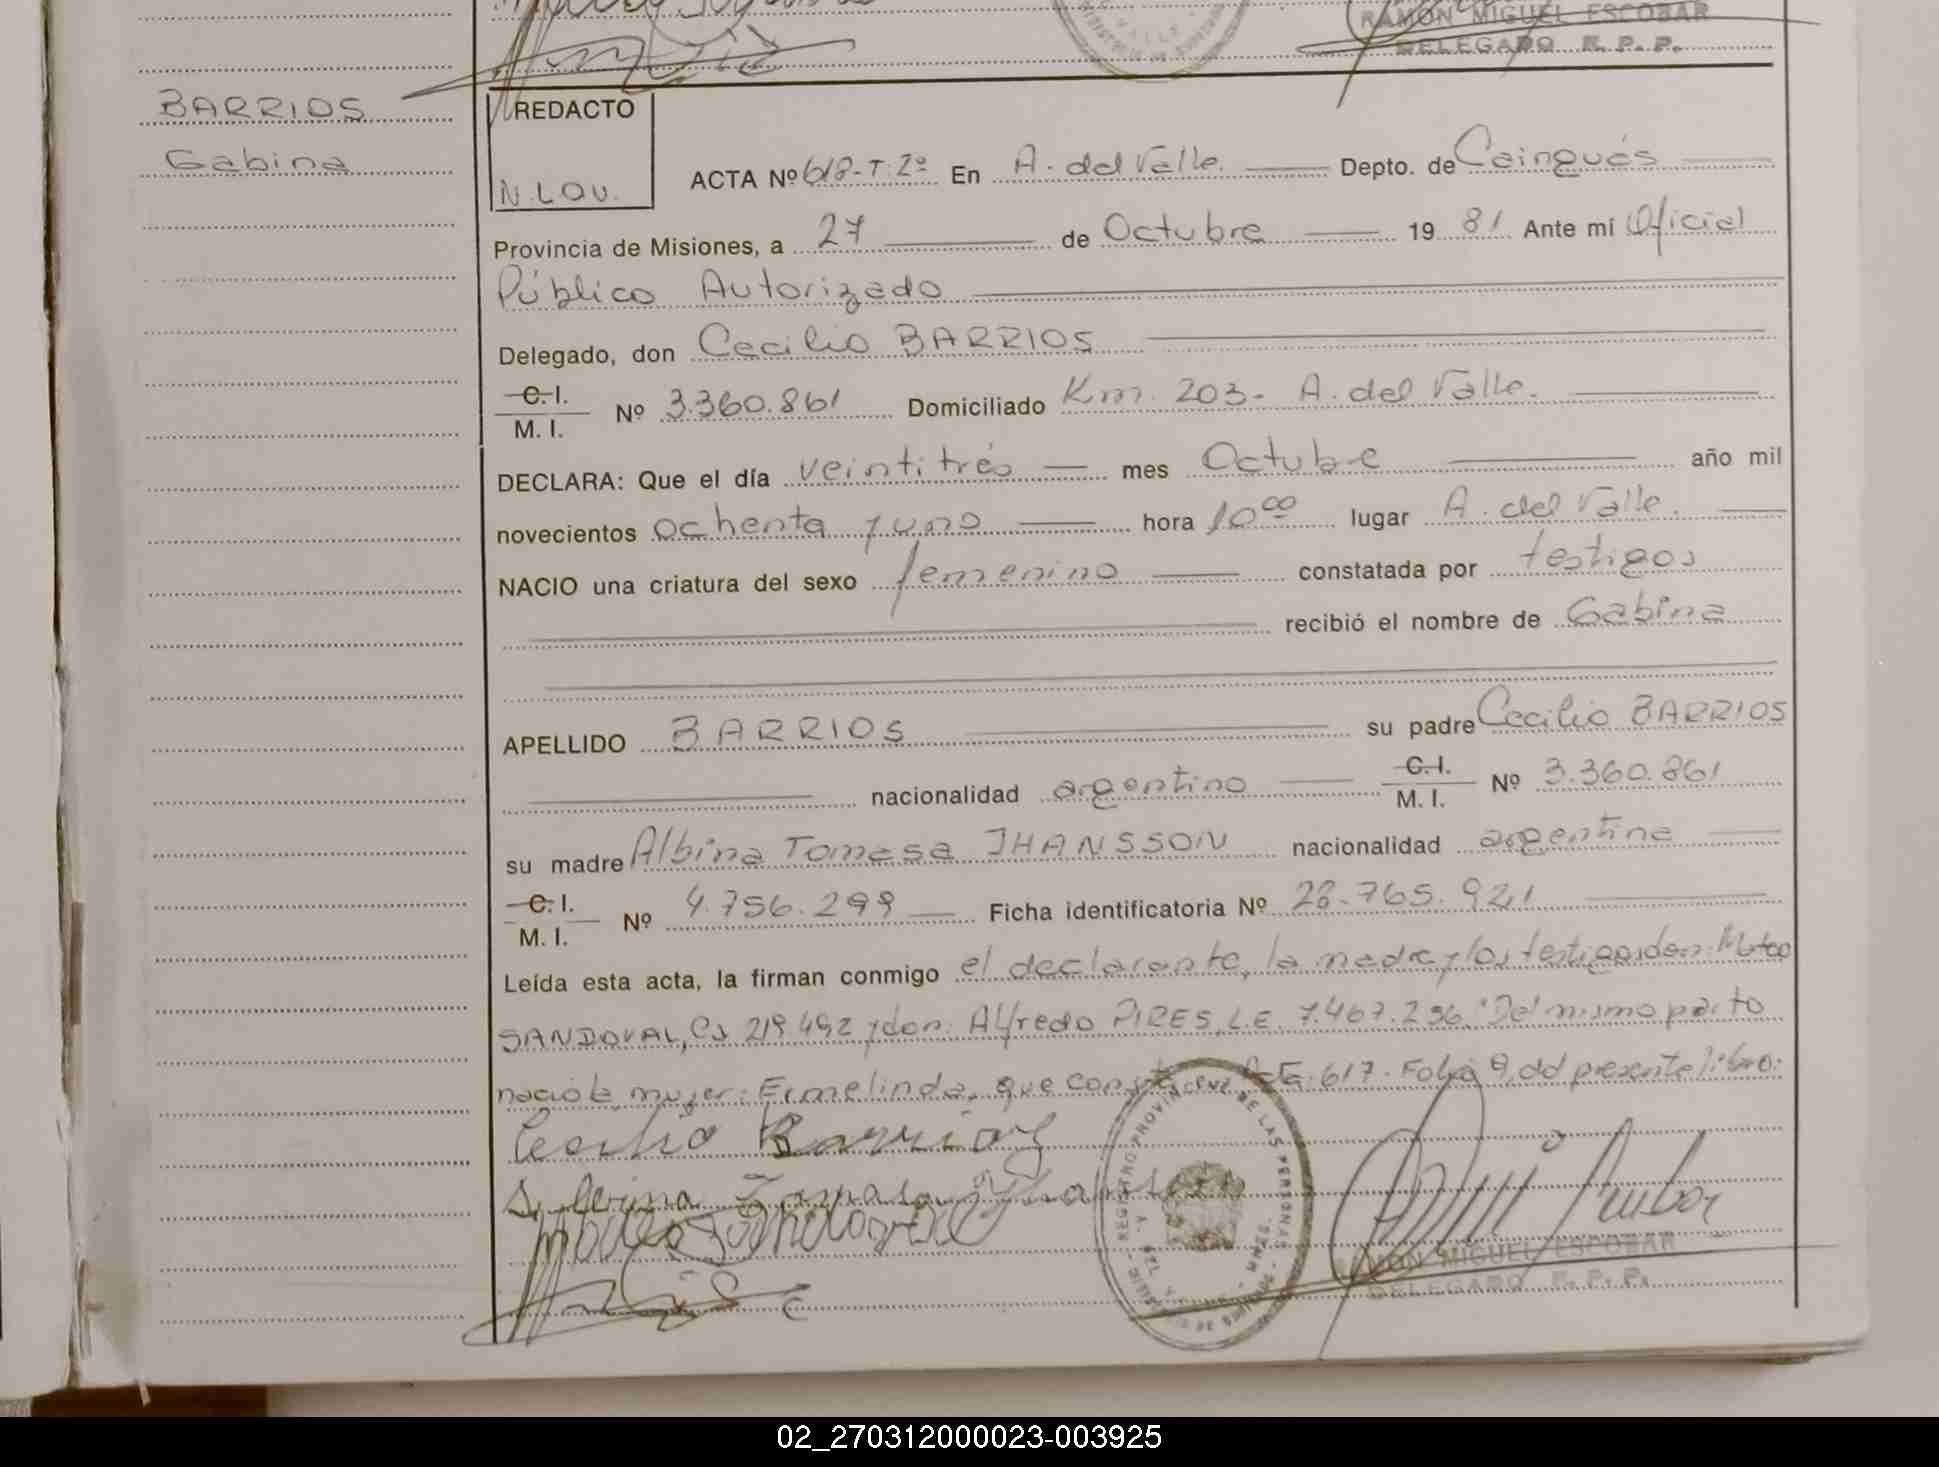 RAMON MIGUEL ESCOBAR
DELEGADO R. P. P.
BARRIOS
Gabina
REDACTO
N. LQU.
ACTA Nº 618-T.2º En A. del Valle. Depto. de Cainguás
Provincia de Misiones, a 27 de Octubre 19 81 Ante mí Oficial
Público Autorizado
Delegado, don Cecilio BARRIOS
C. I.
M. I. Nº 3.360.861 Domiciliado Km. 203- A. del Valle.
DECLARA: Que el día veintitrés mes Octubre año mil
novecientos ochenta y uno hora 10 00 lugar A. del Valle.
NACIO una criatura del sexo femenino constatada por testigos
recibió el nombre de Gabina
APELLIDO BARRIOS su padre Cecilio BARRIOS
nacionalidad argentino C. I. M. I. Nº 3.360.861
su madre Albina Tomasa JHANSSON nacionalidad argentina
C. I.
M. I. Nº 4.756.299 Ficha identificatoria Nº 28.765.921
Leída esta acta, la firman conmigo el declarante, la madre y los testigos don: Mateo
SANDOVAL, CI 219.492 y don: Alfredo PIRES, L.E. 7.467.256. Del mismo parto
nació la mujer: Ermelinda, que consta en el Acta: 617. Folio 9, del presente libro.
Cecilio Barrios
REGISTRO PROVINCIAL DE LAS PERSONAS
RAMON MIGUEL ESCOBAR
DELEGADO R. P. P.
02_270312000023-003925